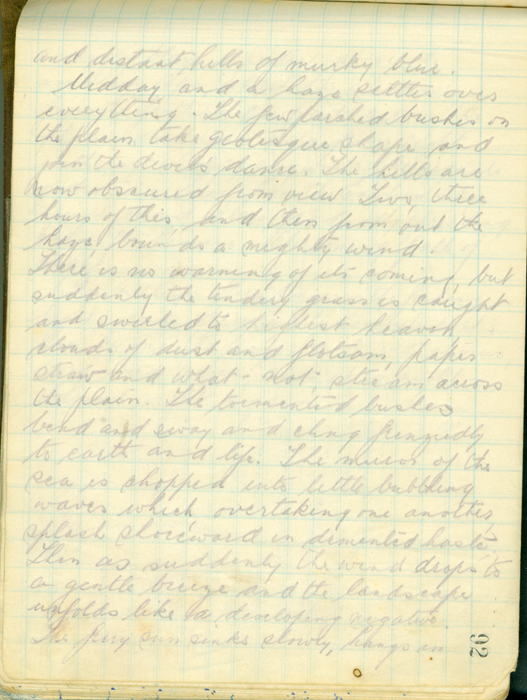 and distant hills of murky blue.
Midday and a haze settles over
everything. The few parched bushes on
the plain take grotesque shape and
join the devil's dance. The hills are
now obscured from view Two, three
hours of this, and then from out the
haze, bounds a mighty wind.
There is no warning of its coming, but
suddenly the tindery grass is caught
and swirled to highest heaven
clouds of dust and flotsam, paper
straw and what-not, stream across
the plain. The tormented bushes
bend and sway and cling frenziedly
to earth and life. The mirror of the
sea is chopped into little bubbling
waves which overtaking one another,
splash shoreward in demented haste
Then as suddenly the wind drops to
a gentle breeze and the landscape
unfolds like a developing negative.
The fiery sun sinks slowly, hangs in
92